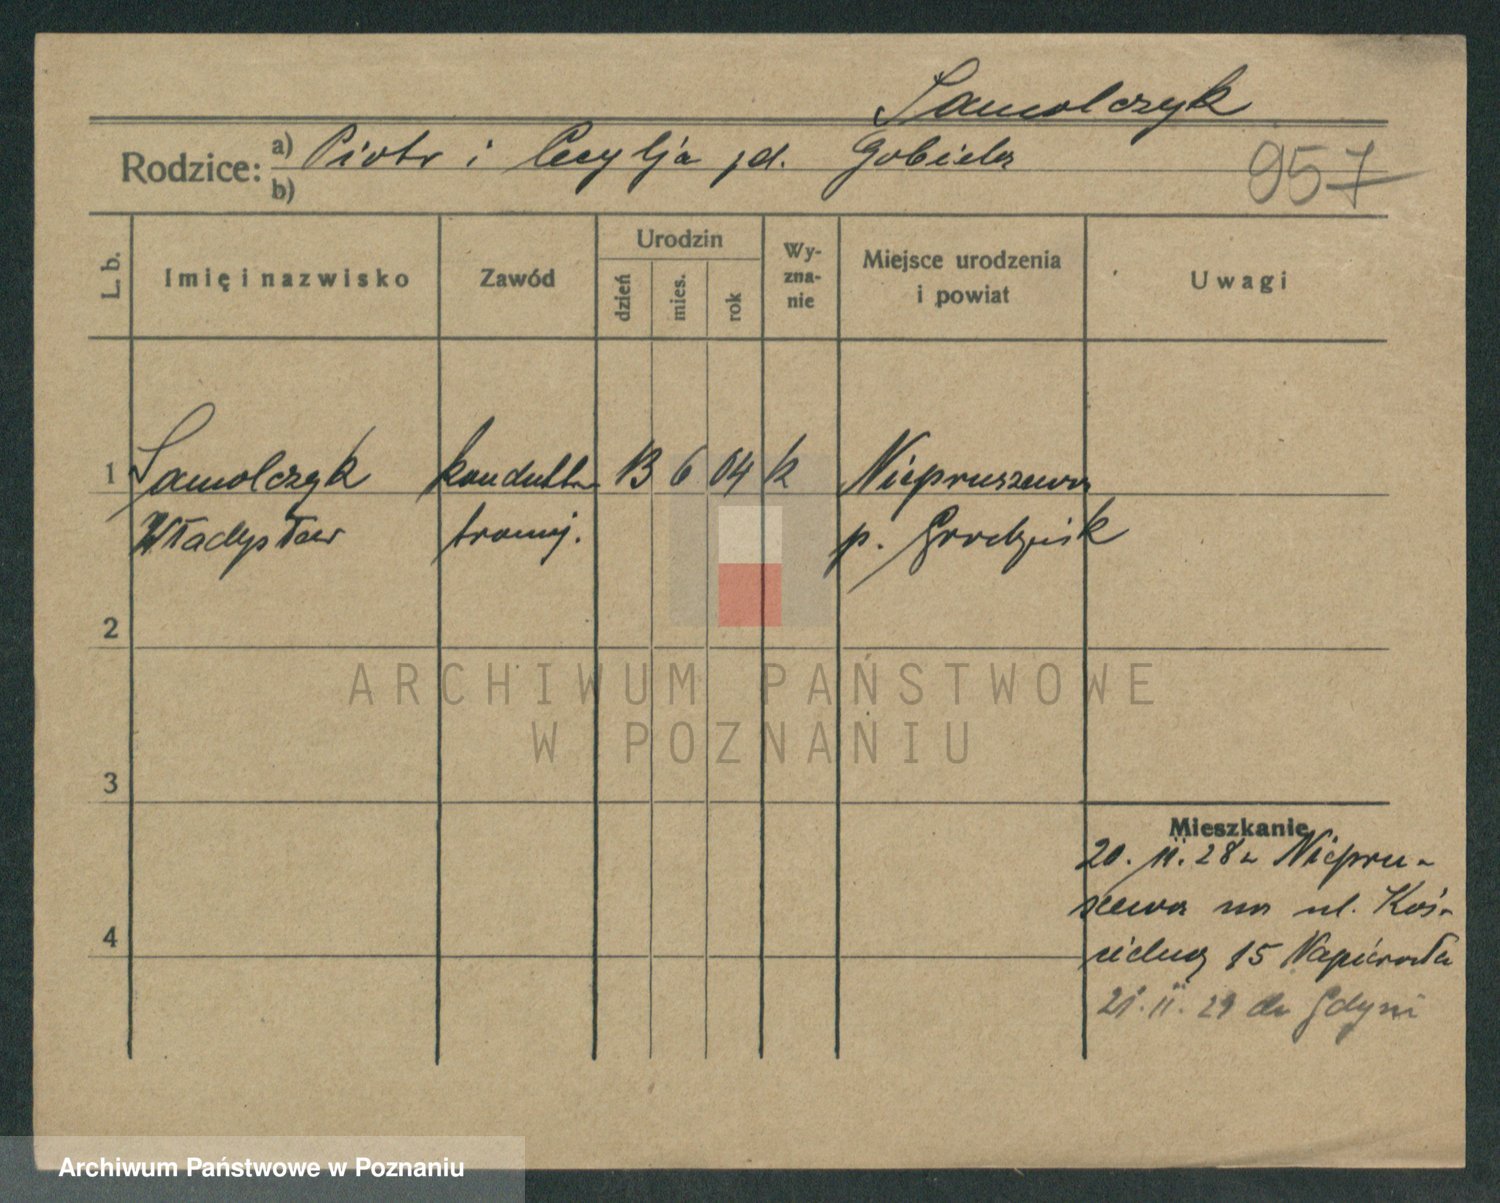 Samolczyk
Rodzice: a) Piotr i Cecylja zd. Gobiela
b)
957
L. b.
Imię i nazwisko
Zawód
Urodzin
dzień
mies.
rok
Wy-
zna-
nie
Miejsce urodzenia
i powiat
Uwagi
1 Samolczyk konduktor 13 6 04 k Niepruszewo
Władysław tramj. p. Grodzisk
2
ARCHIWUM PAŃSTWOWE
W POZNANIU
3
Mieszkanie
20. II. 28 z Niepru-
szewa na ul. Koś-
cielną 15 Napierała
4
21. II. 29 do Gdyni
Archiwum Państwowe w Poznaniu